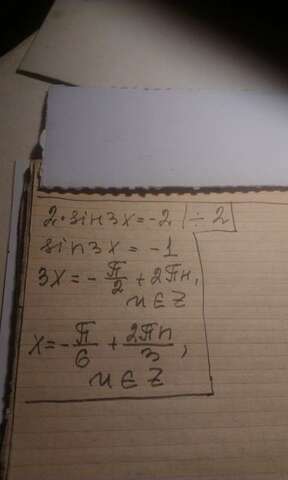 2·sin3x=-2 | ÷ 2
sin3x = -1
3x = -π/2 + 2πn,
n ∈ Z
x = -π/6 + 2πn/3,
n ∈ Z